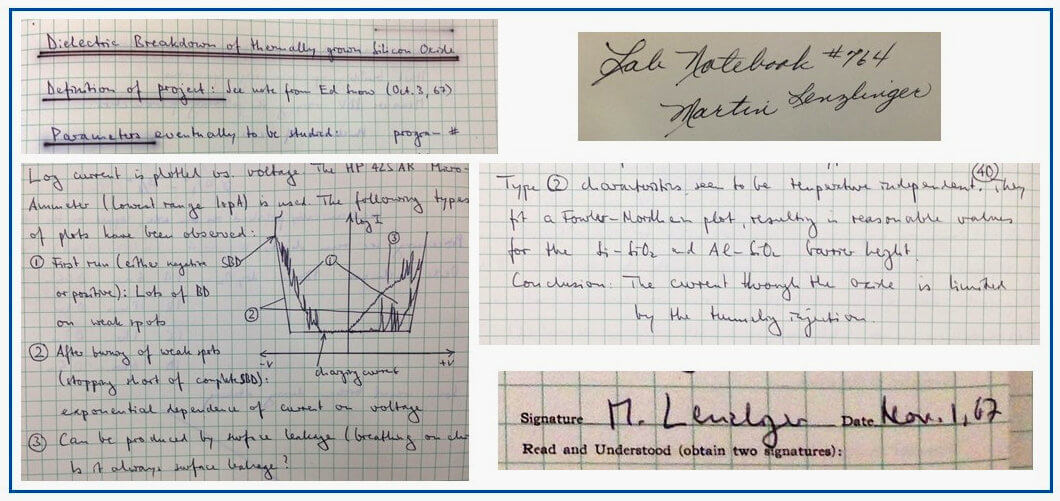 Dielectric Breakdown of thermally grown Silicon Oxide
Definition of project: See note from Ed Snow (Oct. 3, 67)
Parameters eventually to be studied: program #
Lab Notebook #764
Martin Lenzlinger
Log current is plotted vs. voltage. The HP 425 AR Micro-
Ammeter (lowest range 10pA) is used. The following types
of plots have been observed:
① First run (either negative
or positive): Lots of BD
on weak spots
② After burning of weak spots
(stopping short of complete SBD):
exponential dependence of current on voltage
③ Can be produced by surface leakage (breathing on
Is it always surface leakage?
SBD
log I
①
②
③
-V
+V
charging current
40
Type ② characteristics seem to be temperature independent. They
fit a Fowler-Nordheim plot, resulting in reasonable values
for the Si-SiO₂ and Al-SiO₂ barrier height.
Conclusion: The current through the oxide is limited
by the tunneling injection.
Signature M. Lenzlinger Date Nov. 1, 67
Read and Understood (obtain two signatures):